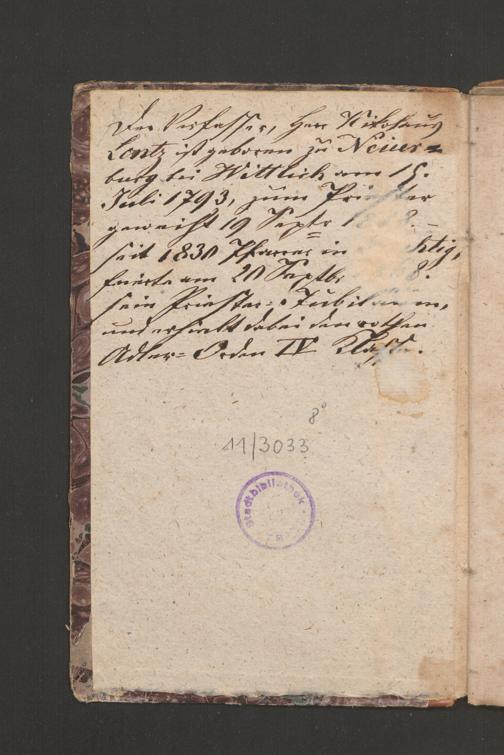 Der Verfasser, Herr Nikolaus
Lentz ist geboren zu Neuer=
burg bei Wittlich am 15.
Juli 1793, zum Priester
geweiht 19 Septr 1 8.
seit 1830 Pfarrer in
feierte am 20 Septbr 8.
sein Priester=Jubiläum,
und erhielt dabei den rothen
Adler=Orden IV Klasse.
8°
11/3033
Stadtbibliothek